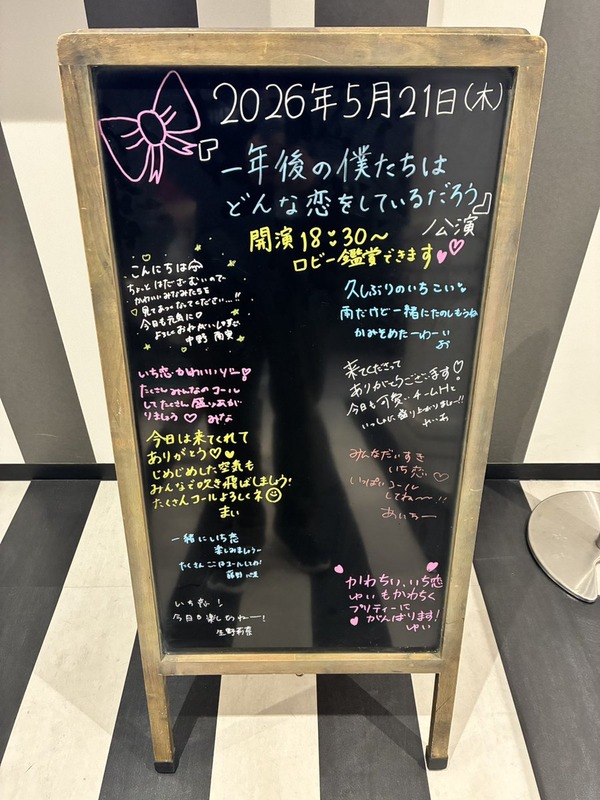 2026年5月21日(木)
『一年後の僕たちは
どんな恋をしているだろう』
公演
開演18:30〜
ロビー鑑賞できます
こんにちは
ちょっとはだざむいので
かわいいみなみたちを
見てあつくなってください…!!
今日も元気に
よろしくおねがいします
中野 南実
いち恋かわいいソン!
たくさんみんなのコール
してたくさん盛りあがり
ましょう♡ みな
今日は来てくれて
ありがとう♡♥
じめじめした空気も
みんなで吹き飛ばしましょう!
たくさんコールよろしくネ☺
まい
一緒にいち恋
楽しみましょう〜
たくさん
いち恋!
今日も楽しもねー!
生野莉奈
久しぶりのいちこい
雨だけど一緒にたのしもうね
かみそめたーわーい
お
来てくださって
ありがとうございます♡
今日も可愛いチームHと
いっしょに盛り上がりましょー!!
みんなだいすき
いち恋♡
いっぱいコール
してね〜!!
あいちー
かわちい、いち恋
ゆいもかわちく
プリティーに
がんばります!
ゆい